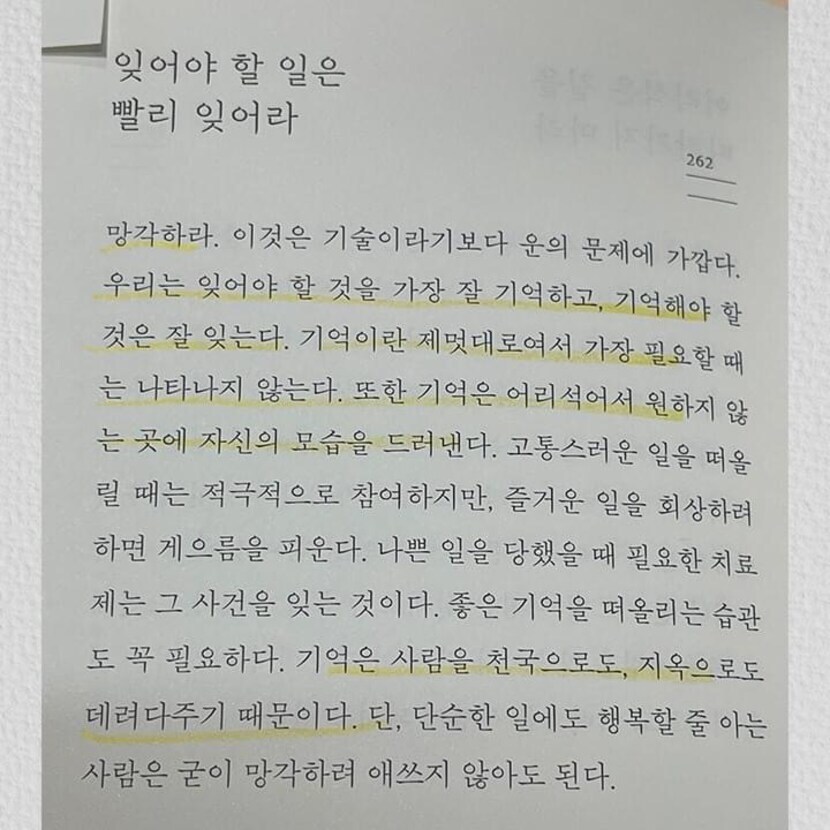 잊어야 할 일은
빨리 잊어라
262
망각하라. 이것은 기술이라기보다 운의 문제에 가깝다.
우리는 잊어야 할 것을 가장 잘 기억하고, 기억해야 할
것은 잘 잊는다. 기억이란 제멋대로여서 가장 필요할 때
는 나타나지 않는다. 또한 기억은 어리석어서 원하지 않
는 곳에 자신의 모습을 드러낸다. 고통스러운 일을 떠올
릴 때는 적극적으로 참여하지만, 즐거운 일을 회상하려
하면 게으름을 피운다. 나쁜 일을 당했을 때 필요한 치료
제는 그 사건을 잊는 것이다. 좋은 기억을 떠올리는 습관
도 꼭 필요하다. 기억은 사람을 천국으로도, 지옥으로도
데려다주기 때문이다. 단, 단순한 일에도 행복할 줄 아는
사람은 굳이 망각하려 애쓰지 않아도 된다.